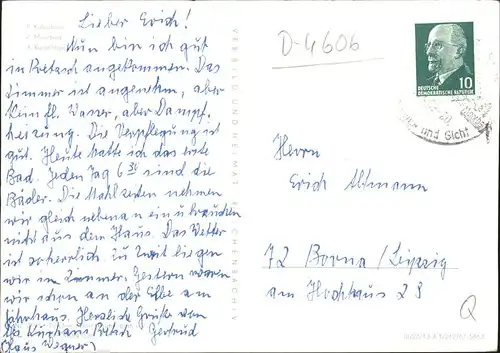 Lieber Erich!
Nun bin ich gut
in Pretzsch angekommen. Das
Zimmer ist angenehm, aber
kein fl. Wasser, aber Dampf-
heizung. Die Verpflegung ist
gut. Heute hatte ich das erste
Bad. Jeden Tag 6 30 sind die
Bäder. Die Mahlzeiten nehmen
wir gleich nebenan ein u. brauchen
nicht aus dem Haus. Das Wetter
ist herrlich. Zu Zweit liegen
wir im Zimmer. Gestern waren
wir schon an der Elbe am
Fährhaus. Herzliche Grüße vom
Kurhaus Pretzsch Gertrud
(Haus Wegner)
D-4606
10
DEUTSCHE
DEMOKRATISCHE REPUBLIK
und Gicht
Herrn
Erich Altmann
72 Borna/Leipzig
am Hochhaus 23
Q
VEB BILD UND HEIMAT REICHENBACH I. V.